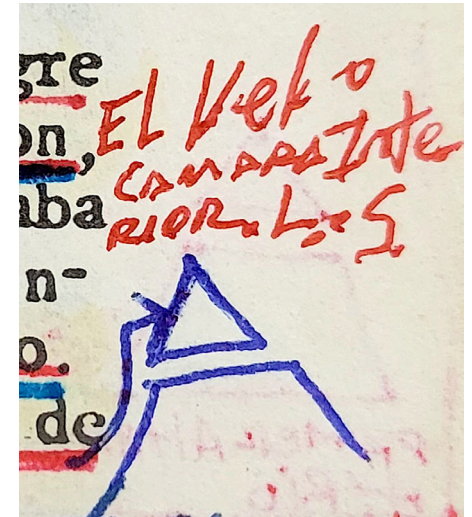 gre
on,
aba
n-
o.
de
El Vel o
CAMARA Inte
RIOR. L. S